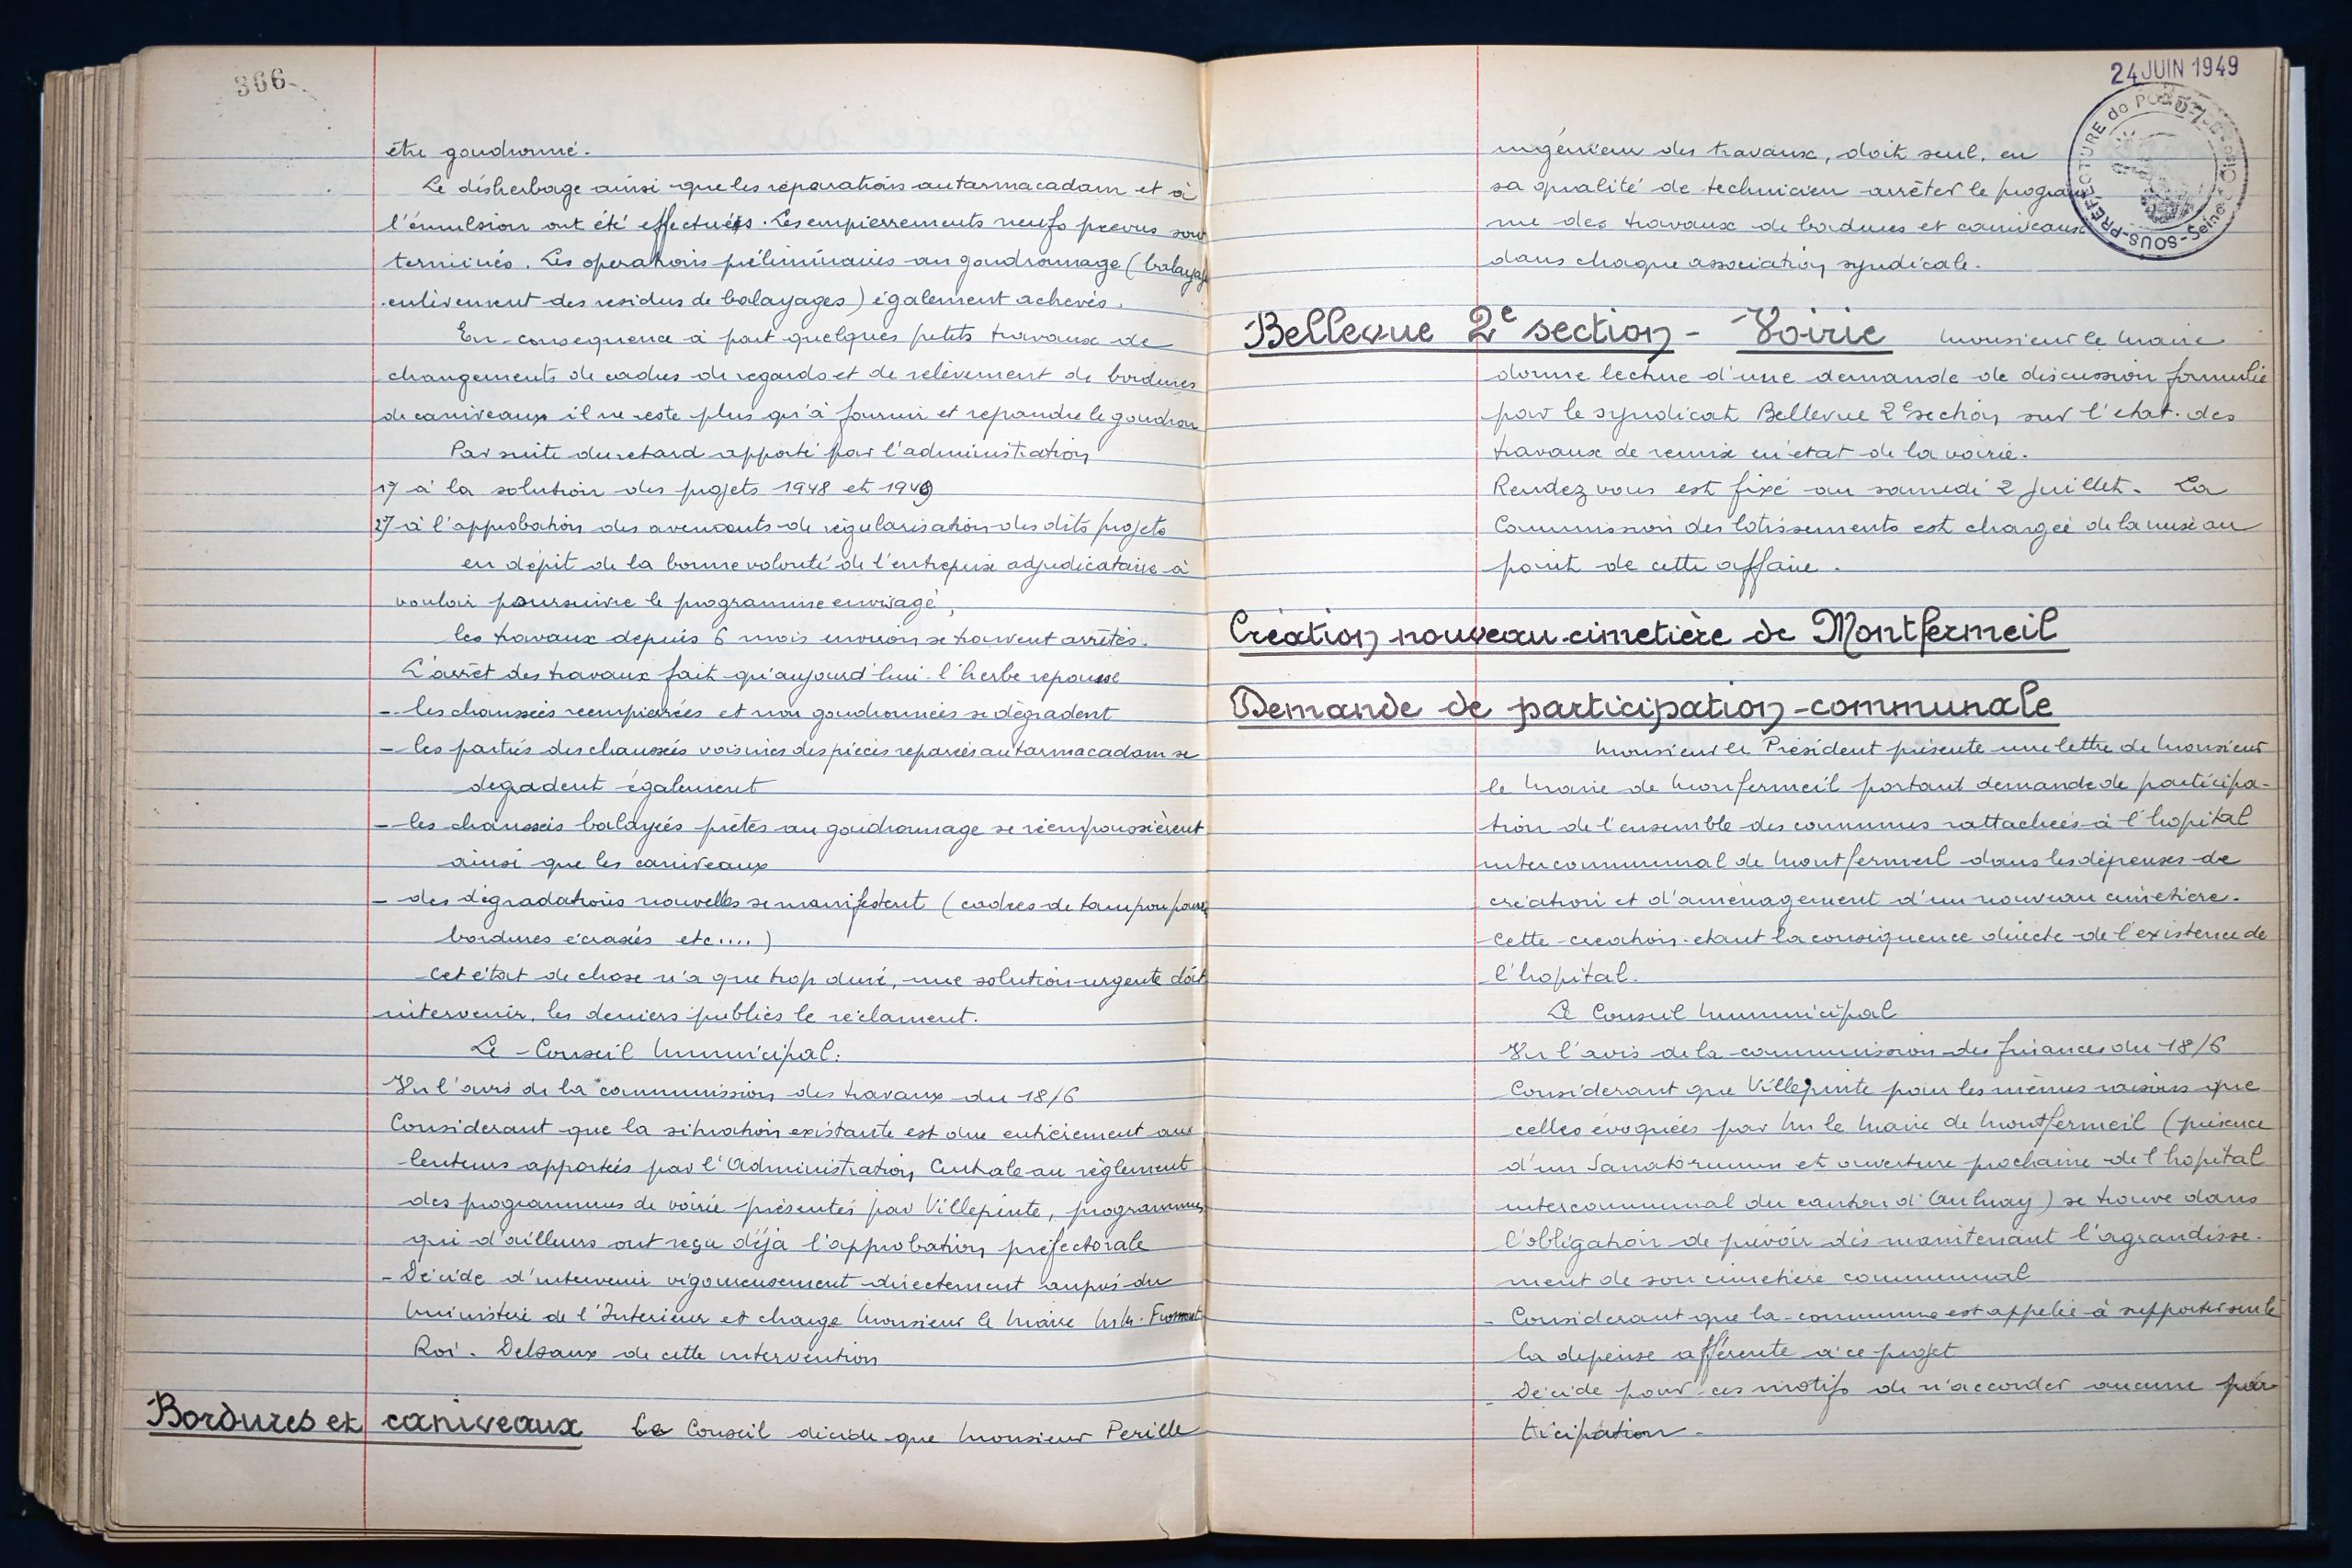 366-
être goudronné.
Le désherbage ainsi que les réparations au tarmacadam et à
l'émulsion ont été effectués. Les empierrements neufs prevus sont
terminés. Les operations préliminaires au goudronnage (balayage
enlèvement des residus de balayages) également achevés.
En consequence à part quelques petits travaux de
changements de cadres de regards et de relèvement de bordures
de caniveaux il ne reste plus qu'à fournir et repandre le goudron
Par suite du retard apporté par l'administration
1°/ à la solution des projets 1948 et 1949
2°/ à l'approbation des avenants de régularisation des dits projets
en dépit de la bonne volonté de l'entreprise adjudicataire à
vouloir poursuivre le programme envisagé,
les travaux depuis 6 mois environ se trouvent arrêtés.
L'arrêt des travaux fait qu'aujourd'hui l'herbe repousse
- les chaussées reempierrées et non goudronnées se dégradent
- les parties des chaussées voisines des pièces reparées au tarmacadam se
degradent également
- les chaussées balayées prêtes au goudronnage se réempoussièrent
ainsi que les caniveaux
- des dégradations nouvelles se manifestent (cadres de tampon
bordures écrasées etc....)
Cet état de chose n'a que trop duré, une solution urgente doit
intervenir, les deniers publics le réclament.
Le Conseil Municipal:
Vu l'avis de la commission des travaux du 18/6
Considerant que la situation existante est due entièrement aux
lenteurs apportées par l'Administration Centrale au règlement
des programmes de voirie présentés par Villepinte, programmes
qui d'ailleurs ont reçu déja l'approbation préfectorale
- Décide d'intervenir vigoureusement directement auprès du
Ministère de l'Interieur et charge Monsieur le Maire MM. Froment
Roi. Delsaux de cette intervention
Bordures et caniveaux Le Conseil décide que Monsieur Perille
24 JUIN 1949
SOUS-PRÉFECTURE de PONTOISE Seine-&-Oise
ingénieur des travaux, doit seul, en
sa qualité de technicien arrêter le program
me des travaux de bordures et caniveaux
dans chaque association syndicale.
Bellevue 2e section - Voirie Monsieur le Maire
donne lecture d'une demande de discussion formulée
par le syndicat Bellevue 2e section sur l'etat des
travaux de remise en état de la voirie.
Rendez vous est fixé au samedi 2 Juillet. La
Commission des lotissements est chargée de la mise au
point de cette affaire.
Création nouveau cimetière de Montfermeil
Demande de participation communale
Monsieur le Président présente une lettre de Monsieur
le Maire de Monfermeil portant demande de participa-
tion de l'ensemble des communes rattachées à l'hopital
intercommunal de Montfermeil dans les dépenses de
création et d'aménagement d'un nouveau cimetière.
Cette creation etant la conséquence directe de l'existence de
l'hopital.
Le Conseil Municipal
Vu l'avis de la commission des finances du 18/6
Considerant que Villepinte pour les mêmes raisons que
celles évoquées par Mr le Maire de Montfermeil (présence
d'un Sanatorium et ouverture prochaine de l'hopital
intercommunal du canton d'Aulnay) se trouve dans
l'obligation de prévoir dès maintenant l'agrandisse-
ment de son cimetière communal
- Considerant que la commune est appelée à supporter seule
la depense afférente à ce projet
- Décide pour ces motifs de n'accorder aucune par
ticipation -